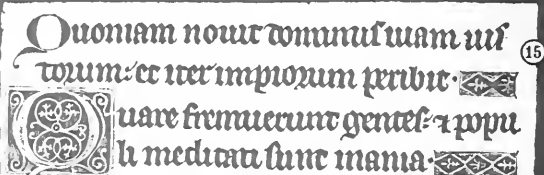 Quoniam nouit dominus uiam ius
torum: et iter impiorum peribit.
Quare fremuerunt gentes: ⁊ popu
li meditati sunt inania.
15